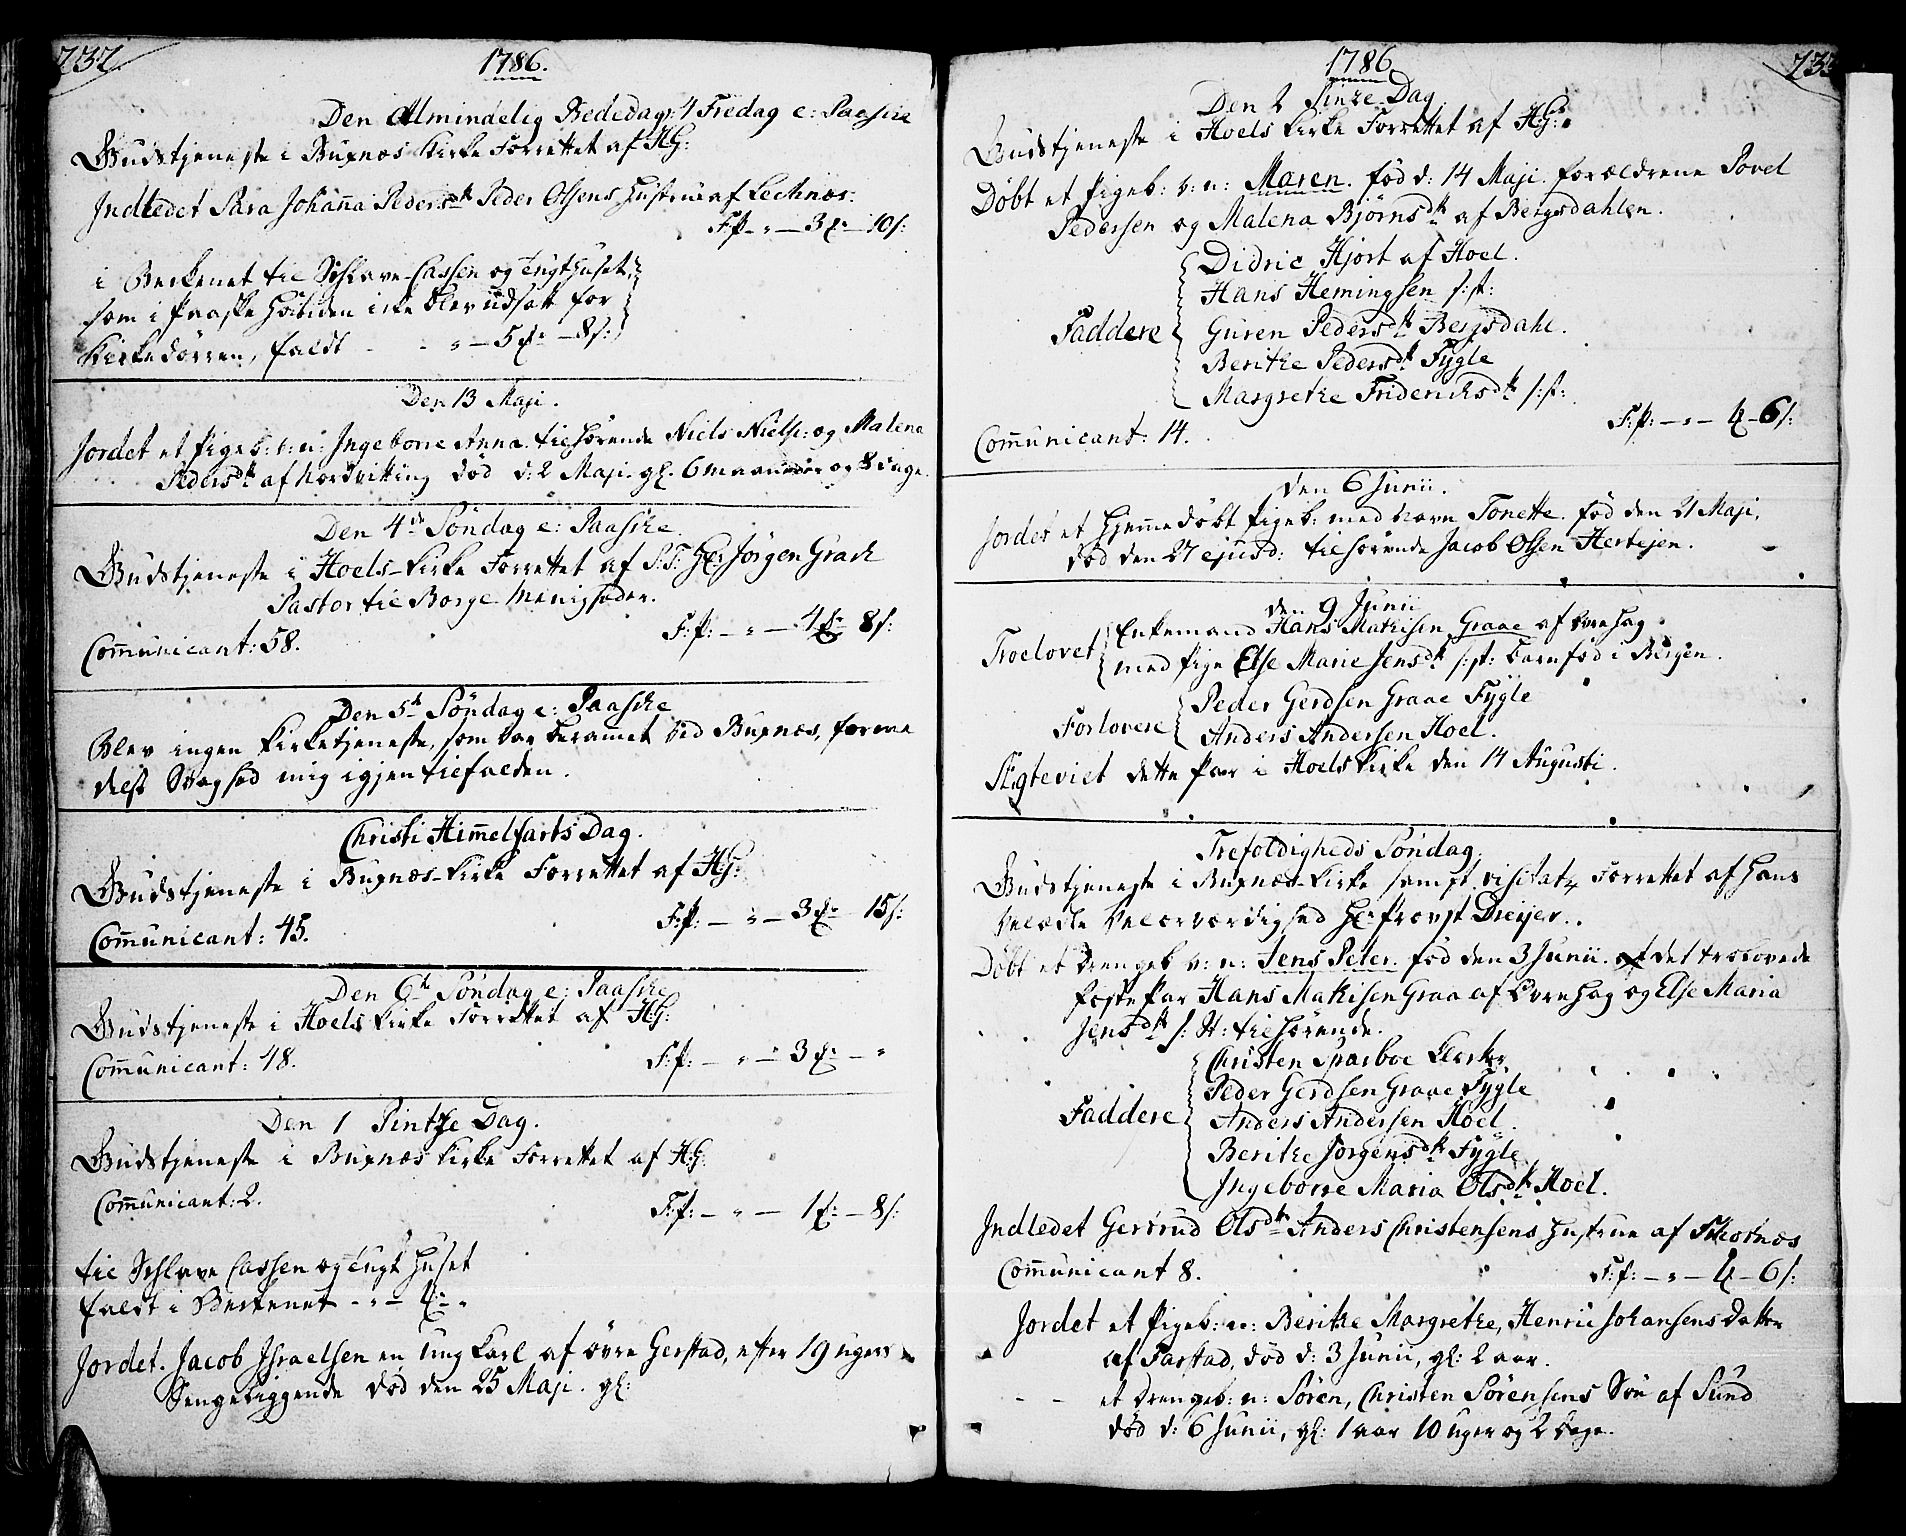 232
1786.
Den Almindelig Bededag: 4 Fredag e: Paaske
Gudstjeneste i Buxnæs Kirke Forrettet af HG:
Indledet Sara Johanna Peders dt Peder Olsens Hustrue af Lechnæs.
F:P - " - 3 - 10 s:
i Beckenet til Schlave Cassen og Tugthuset,
som i Paaske Høitiden icke blev udsatt for
Kirkedørren, faldt " - 5 - 8 s:
Den 13 Maji.
Jordet et Pigeb: v: n: Ingeborre Anna tilhørende Niels Niels: og Malena
Peders dt af Nordvikting død d: 2 Maji. gl. 6 maaneder og 8 dage.
Den 4de Søndag e: Paaske
Gudstjeneste i Hoels-Kirke Forrettet af S:T: Hr: Jørgen Grach
Pastor til Borge Menigheder.
Communicant: 58.
F:P: - " - 4 8 s:
Den 5te Søndag e: Paaske
Blev ingen Kirketjeneste, som var berammet ved Buxnæs, forme
delst Svaghed mig igjen tilfalden.
Christi Himmelfarts Dag.
Gudstjeneste i Buxnæs-Kirke Forrettet af HG:
Communicant: 45.
F:P: - " - 3 - 15 s:
Den 6te Søndag e: Paaske
Gudstjeneste i Hoels Kirke Forrettet af HG:
Communicant: 48.
F:P: - " - 3 - "
Den 1 Pintze Dag.
Gudstjeneste i Buxnæs Kirke Forrettet af HG:
Communicant: 2.
F:P: - " - 1 - 8 s:
til Schlave Cassen og Tugt Huset
faldt i Beckenet - " -
Jordet. Jacob Israelsen en ung Karl af øvre Gerstad, efter 19 ugers
Sengeliggende død den 25 Maji. gl:
233
1786.
Den 2 Pinze Dag
Gudstjeneste i Hoels Kirke Forrettet af HG:
Døbt et Pigeb: v: n: Maren. fød d: 14 Maji. forældrene Povel
Pedersen og Malena Bjørns dt af Bergsdahlen.
Didric Hjort af Hoel.
Hans Hemingsen s: st:
Faddere Guren Peders dt Bergsdahl.
Beritke Peders dt Fygle
Margretke Friderichs dt s: st:
F:P: - " - 4 - 6 s:
Communicant: 14.
Den 6 Junii.
Jordet et Hjemmedøbt Pigeb: med navn Tonette. fød den 21 Maji,
død den 27 ejusd: tilhørende Jacob Olsen Hertejen.
den 9 Junii
Troelovet Enkemand Hans Matkisen Graae af Ovrehag
med Pige Else Marie Jens dt s: st: barnfød i Bergen.
Forlovere Peder Gerdsen Graae Fygle
Anders Andersen Hoel.
Ægteviet dette Par i Hoels Kirke den 14 Augusti.
Trefoldigheds Søndag
Gudstjeneste i Buxnæs-Kirke sampt visitatz Forrettet af Hans
Velædle Velærværdighed Hr Provst Dreyer.
Døbt et Drengeb v: n: Jens Peter. fød den 3 Junii. af det trolovede
fæste Par Hans Matkisen Graa af Ovrehag og Else Maria
Jens dt s: st: tilhørende.
Christen Sparboe Klerk
Peder Gerdsen Graae Fygle
Faddere Anders Andersen Hoel.
Beritke Jørgens dt Fygle
Ingeborre Maria Ols dt Hoel.
Indledet Gertrud Ols dt Anders Christensens Hustrue af Skotnæs
Communicant 8.
F:P: - " - 4 - 6 s:
Jordet et Pigeb: n: Beritke Margretke, Henric Johansens Datter
af Farstad, død d: 3 Junii, gl: 2 aar.
- - et Drengeb: n: Søren, Christen Sørensens Søn af Sund
død d: 6 Junii, gl: 1 aar 10 uger og 2 dage.